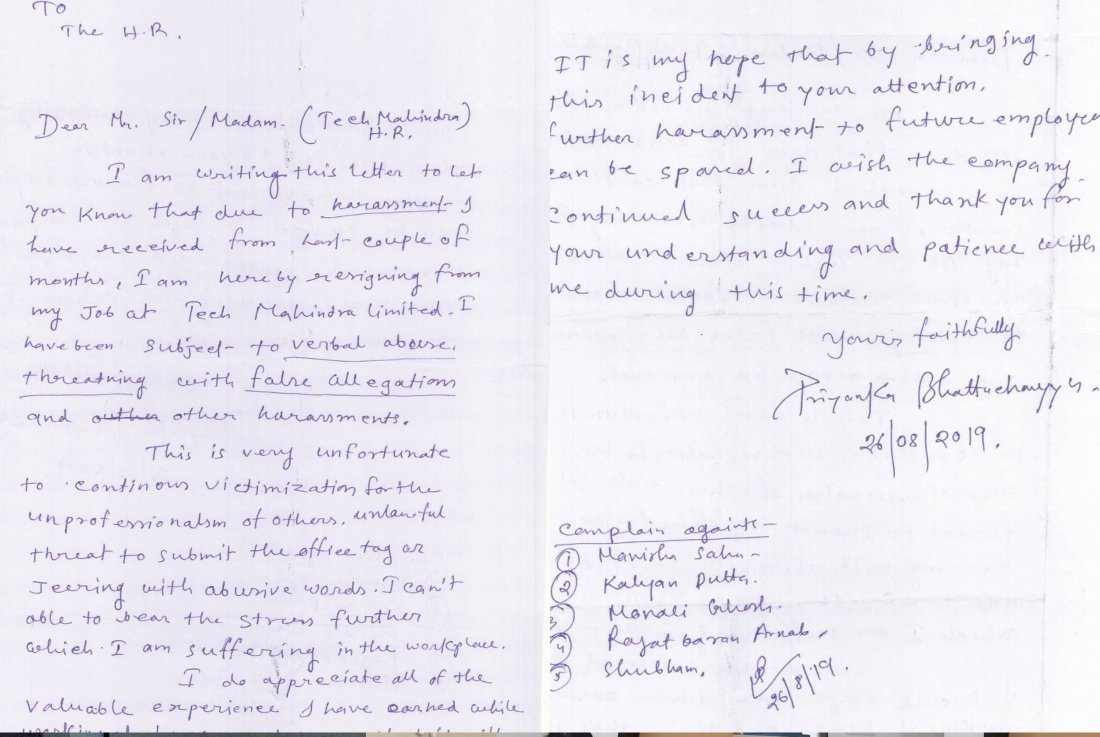 To
The H.R.
Dear Mr. Sir/Madam. (Tech Mahindra)
H.R.
I am writing this letter to let
you know that due to harassment I
have received from last couple of
months, I am hereby resigning from
my Job at Tech Mahindra Limited. I
have been subject to verbal abuse,
threatning with false allegations
and other harassments.
This is very unfortunate
to continous victimization for the
unprofessionalsm of others. unlawful
threat to submit the office tag or
Jeering with abusive words. I can't
able to bear the stress further
which I am suffering in the workplace.
I do appreciate all of the
valuable experience I have earned while
IT is my hope that by bringing
this incident to your attention,
further harassment to future employee
can be spared. I wish the company
continued success and thank you for
your understanding and patience with
me during this time
Yours faithfully
Priyanka Bhattacharyya.
26/08/2019.
Complain againts-
1 Manisha Saha-
2 Kalyan Dutta.
3 Monali Ghosh.
4 Rajat baran Arnab.
5 Shubham.
26/8/19.